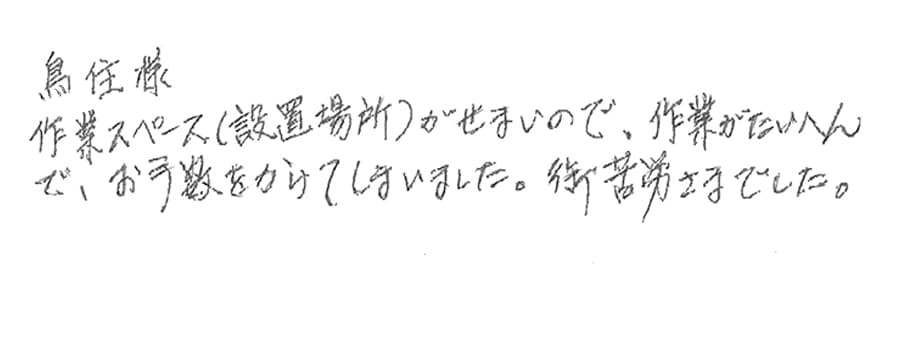 鳥住様
作業スペース(設置場所)がせまいので、作業がたいへん
で、お手数をかけてしまいました。御苦労さまでした。